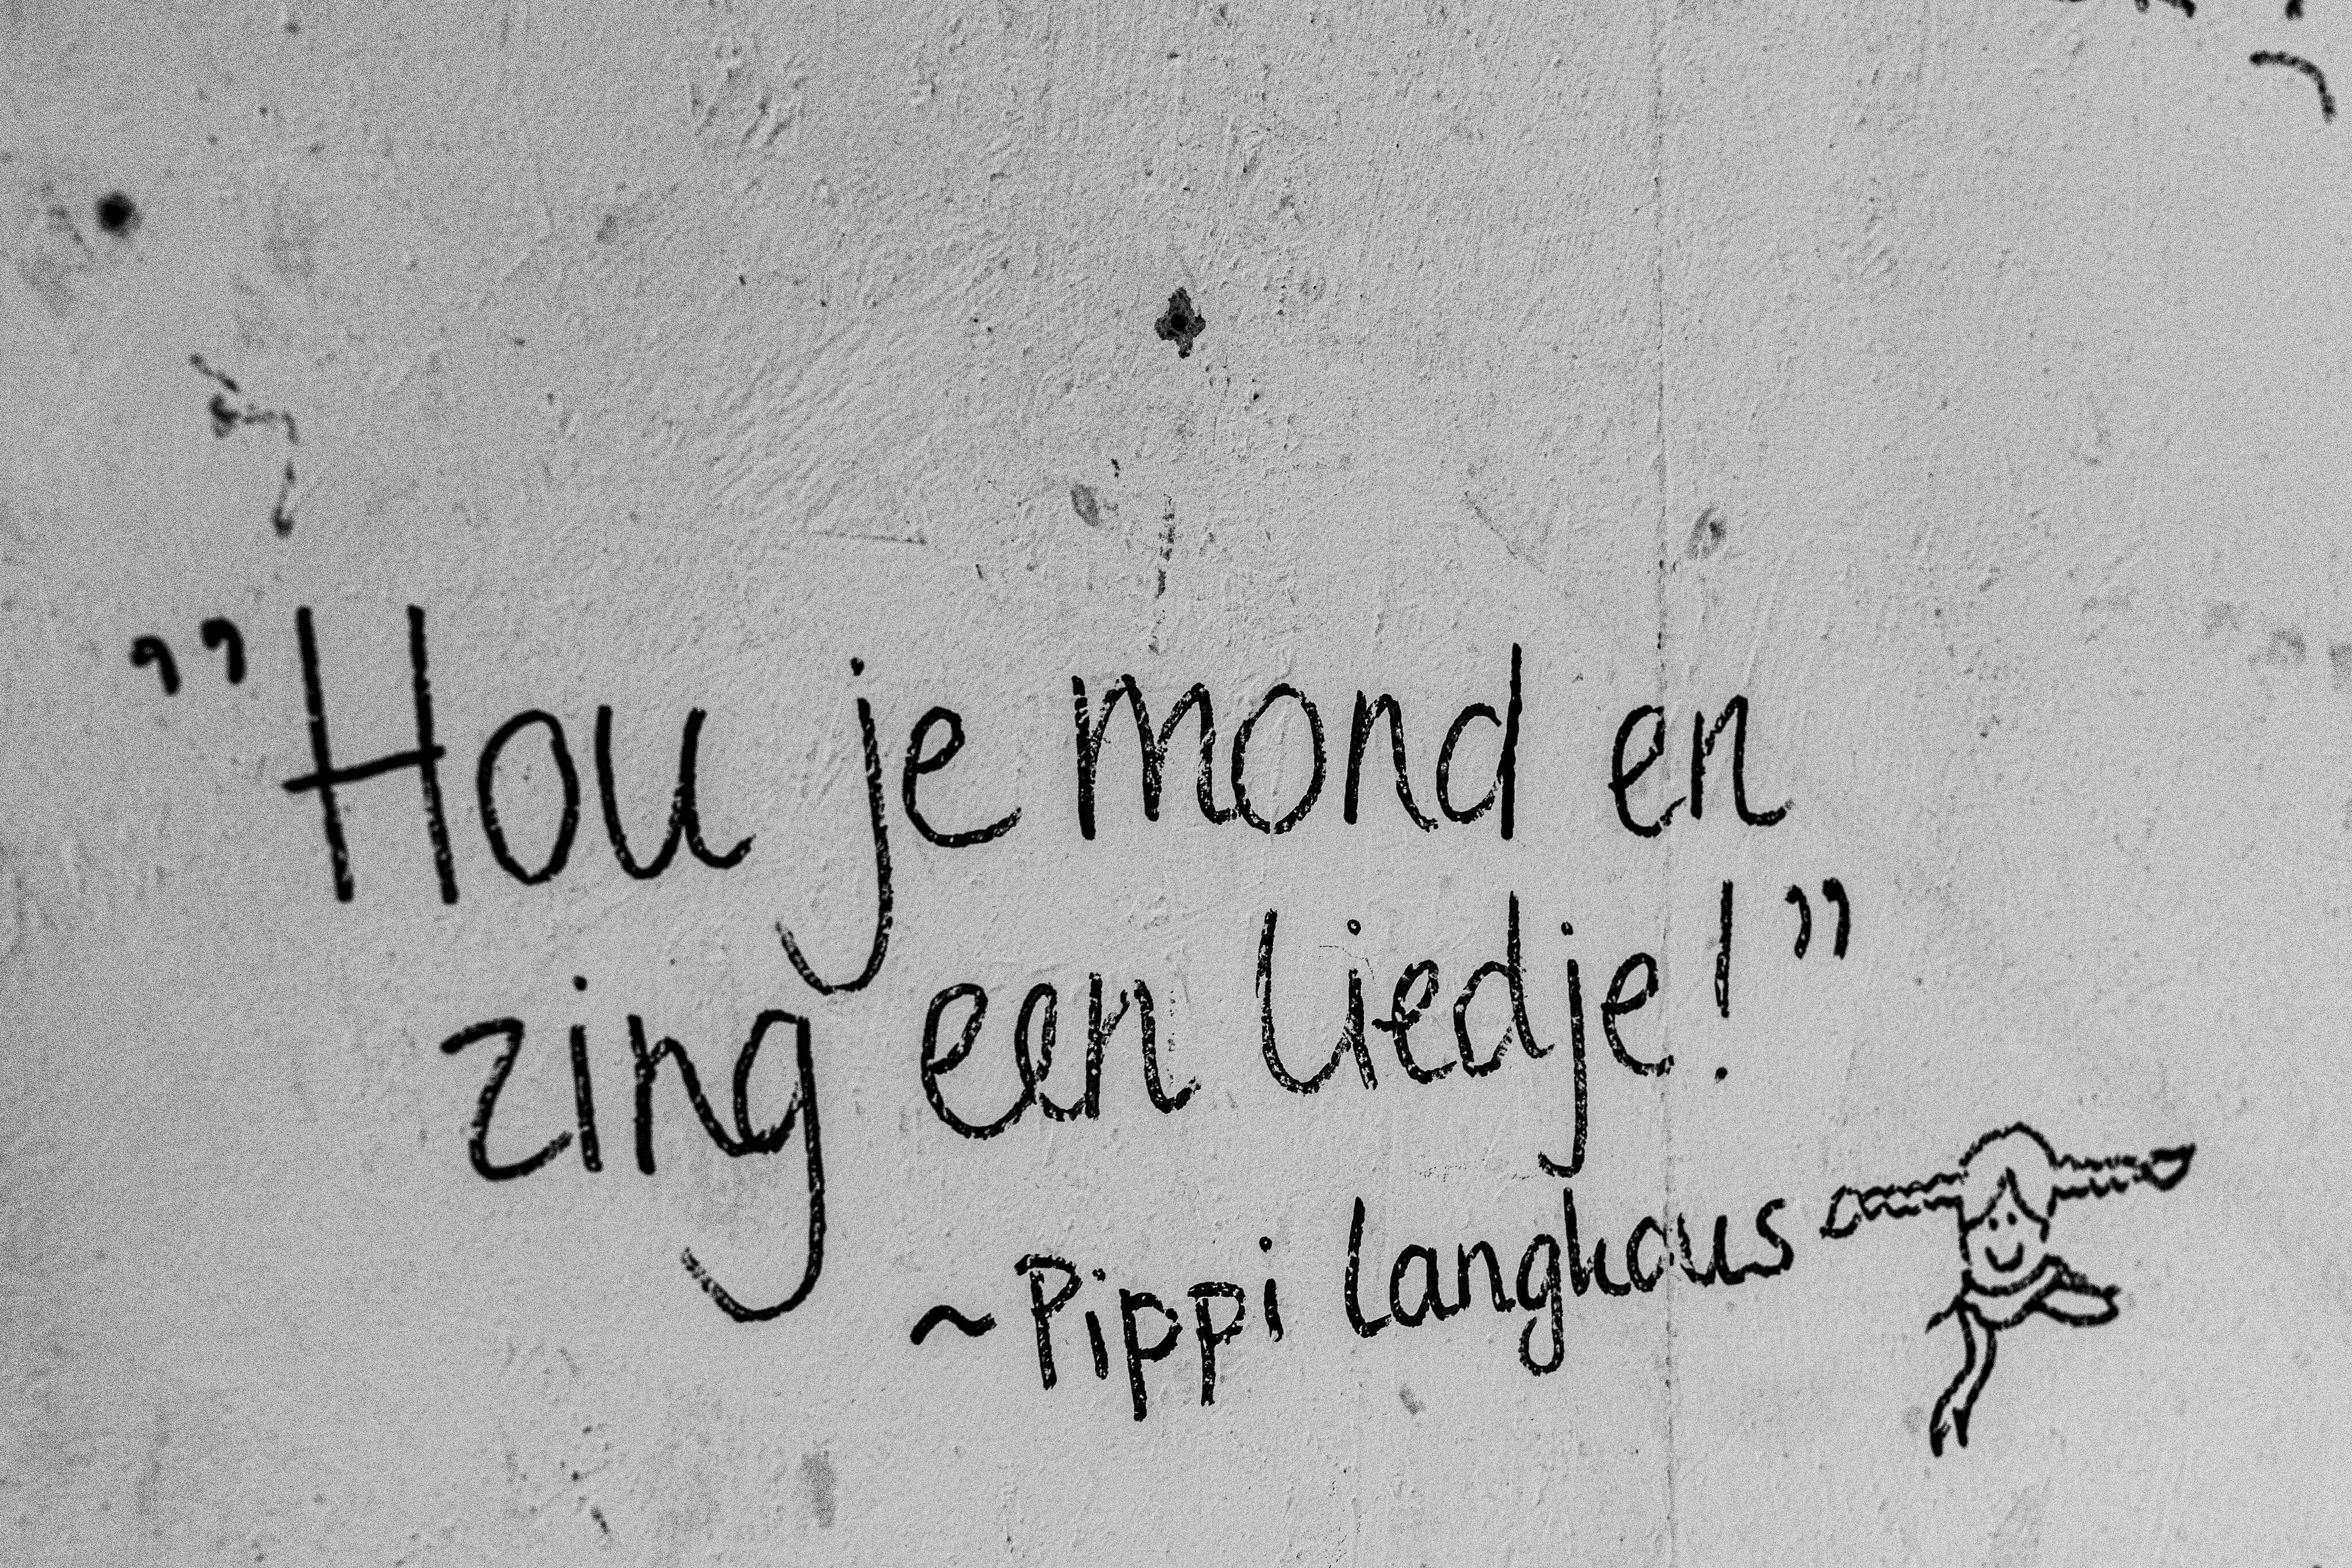 ”Hou je mond en
zing een liedje!”
~Pippi Langkous